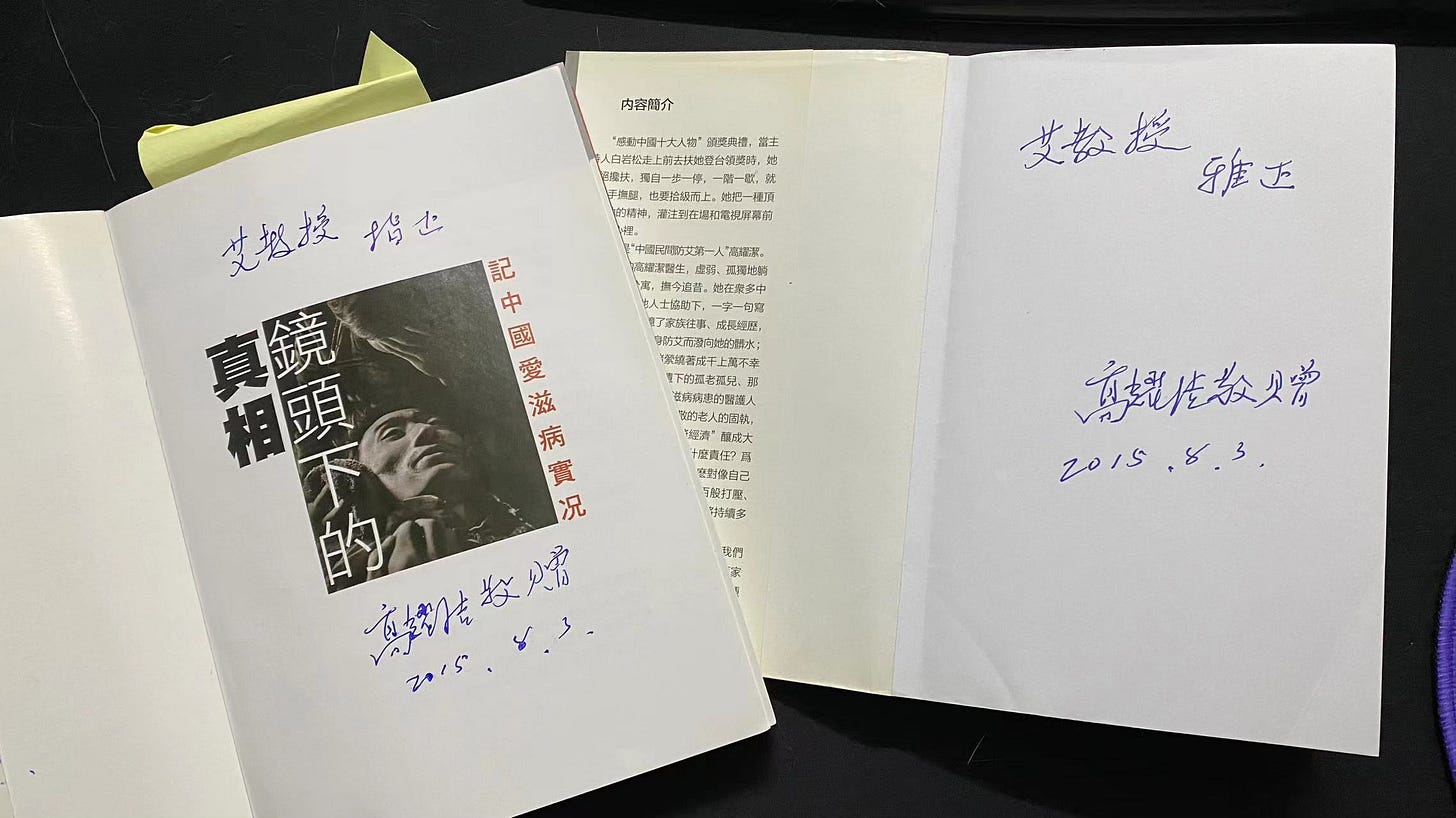 艾教授 指正
記中國愛滋病實况
鏡頭下的
真相
高耀洁敬贈
2015.8.3.
内容簡介
“感動中國十大人物”頒獎典禮，當主
人白岩松走上前去扶她登台領獎時，她
攙扶，獨自一步一停，一階一歇，就
手撫腿，也要拾級而上。她把一種頂
的精神，灌注到在場和電視屏幕前
裡。
是“中國民間防艾第一人”高耀潔。
高耀潔醫生，虛弱、孤獨地躺
寓，撫今追昔。她在衆多中
人士協助下，一字一句寫
了家族往事、成長經歷，
防艾而潑向她的髒水；
縈繞著成千上萬不幸
下的孤老孤兒、那
滋病病患的醫護人
的老人的固執，
經濟”釀成大
什麼責任？爲
麽對像自己
百般打壓、
持續多
我們
家
艾教授
雅正
高耀洁敬贈
2015.8.3.